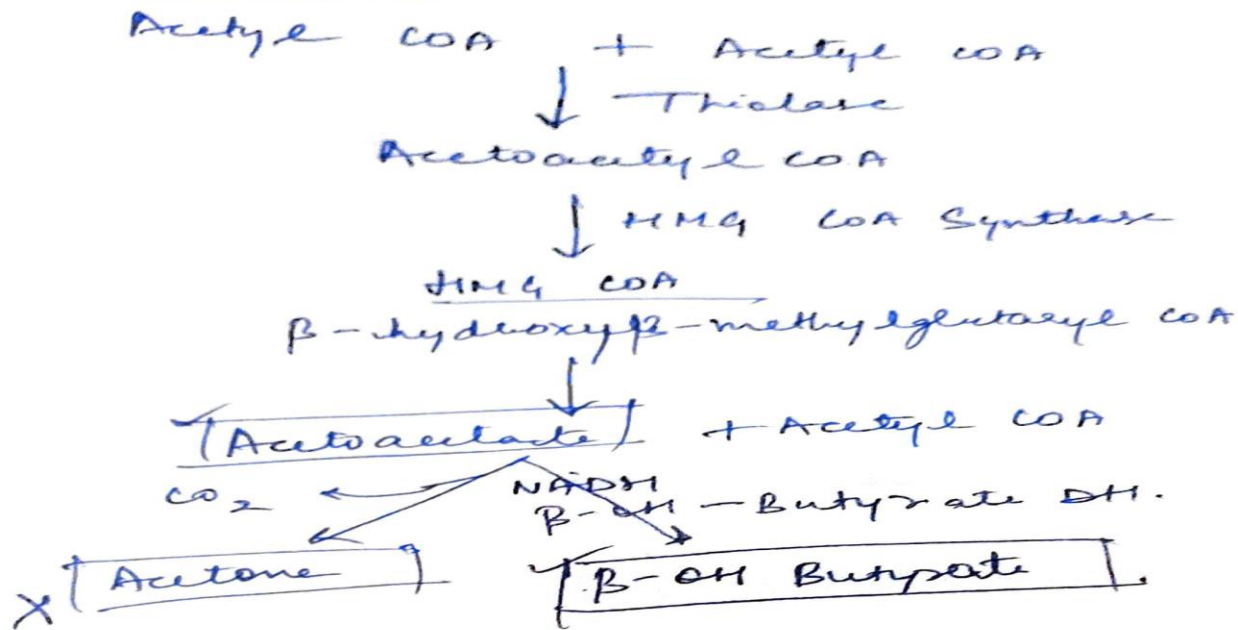 Acetyl COA + Acetyl COA
Thiolase
Acetoacetyl COA
HMG COA Synthase
HMG COA
β-hydroxy β-methylglutaryl COA
Acetoacetate + Acetyl COA
CO2 NADH
β-OH-Butyrate DH.
X Acetone β-OH Butyrate